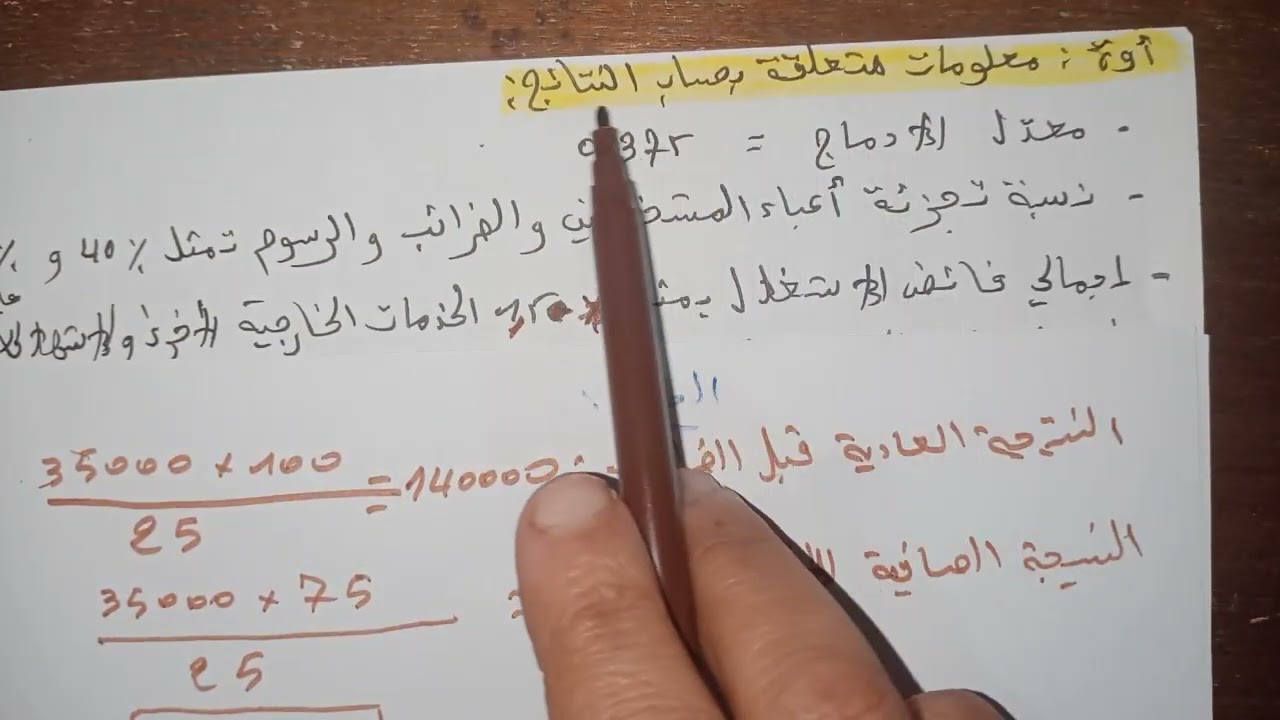 أولا : معلومات متعلقة بحساب النتائج :
- معدل الإدماج = 0,375
- نسبة تجزئة أعباء المستخدمين والضرائب والرسوم تمثل 40 % و %
- إجمالي فائض الاستغلال يمثل الخدمات الخارجية الأخرى والاستهلاك
النتيجة العادية قبل 140000 = 35000 × 100
25
النتيجة الصافية
35000 × 75
25